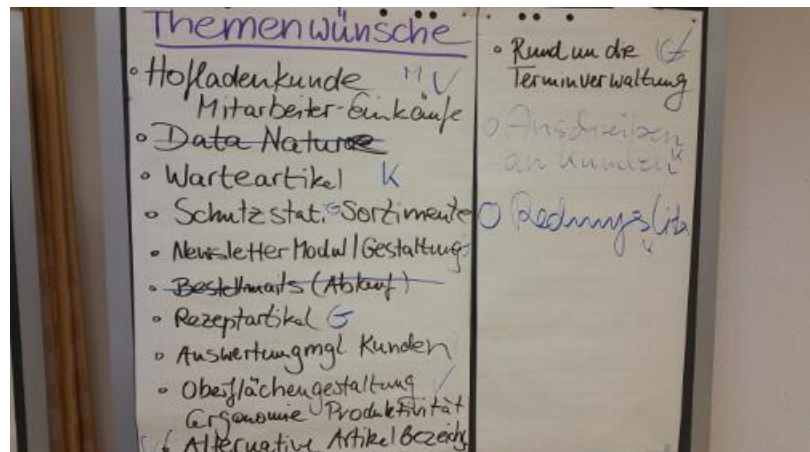 Themenwünsche
• Hofladenkunde M V
Mitarbeiter-Einkäufe
• Data Nature
• Warteartikel K
• Schutzstat. G Sortimente
• Newsletter Modul / Gestaltung
• Bestellmails (Ablauf)
• Rezeptartikel G
• Auswertung mgl. Kunden
• Oberflächengestaltung
Ergonomie Produktivität
Alternative Artikel
• Rund um die
Terminverwaltung
o Anschreiben
an Kunden K